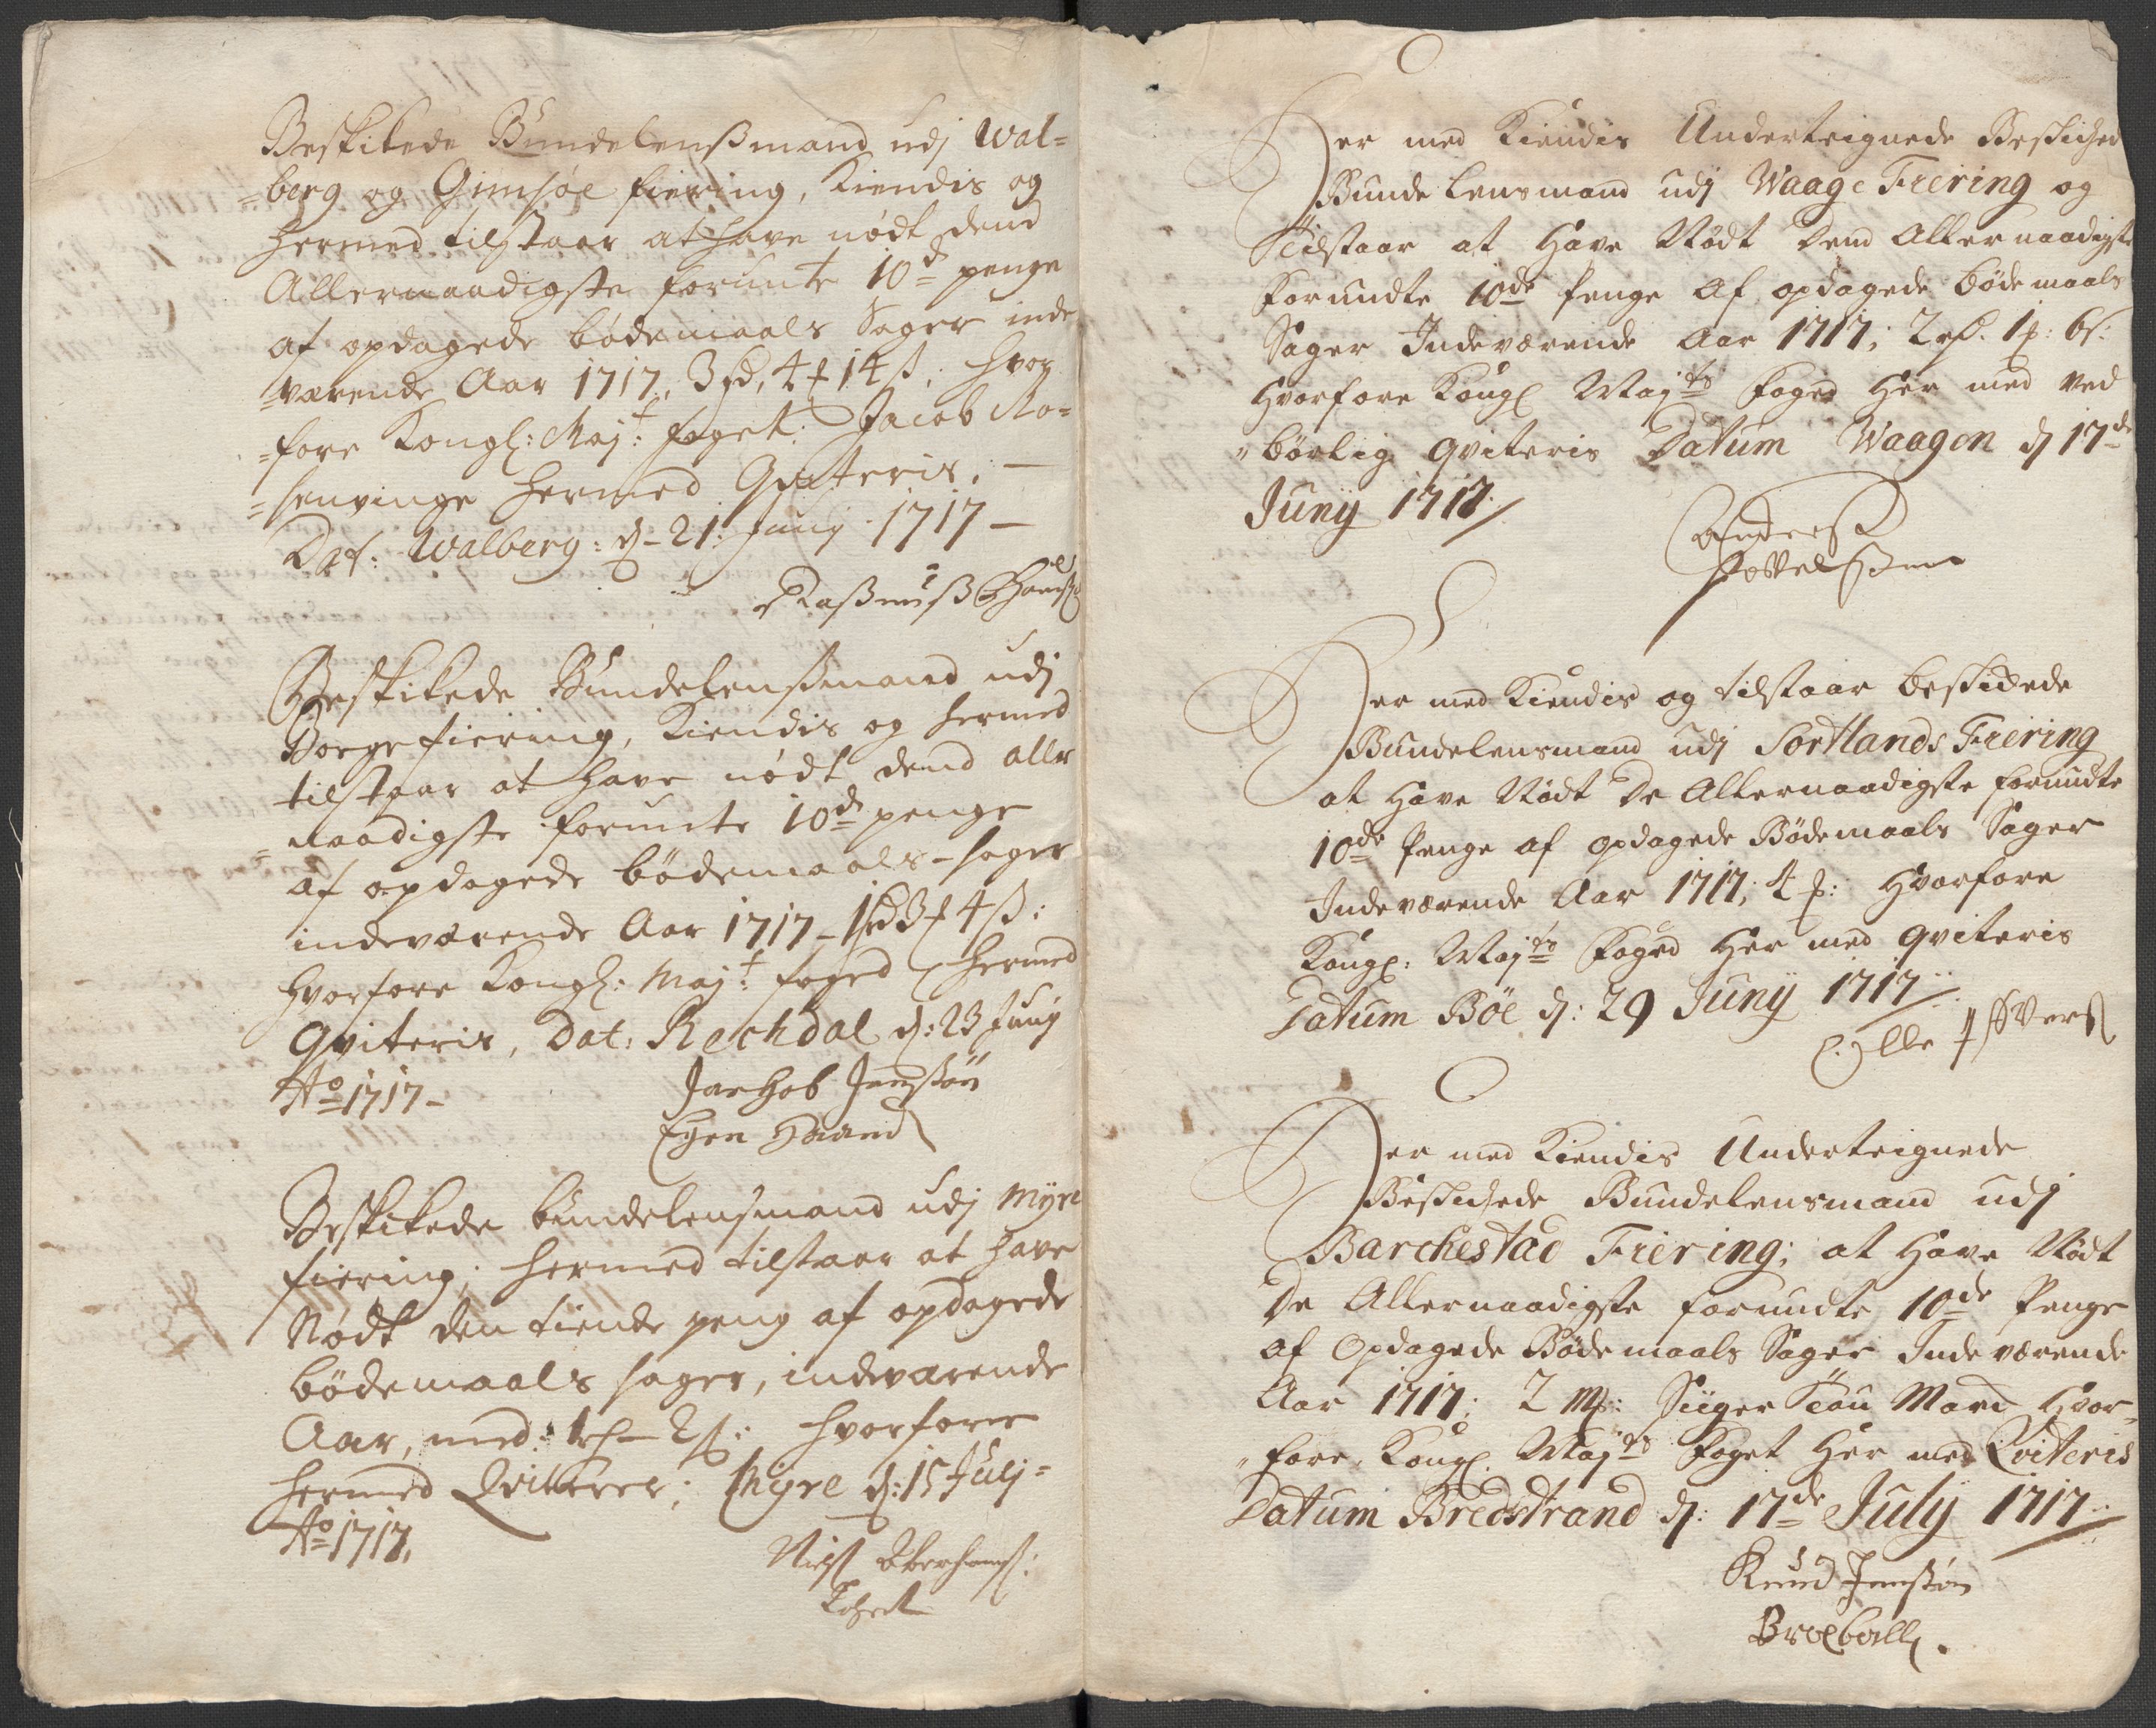 Beskikede Bundelensmand udj Wal=
=berg og Gimsøe fiering, Kiendis og
hermed tilstaar at have nødt dend
Allernaadigste forunte 10d penge
af opdagede bødemaals Sager inde
=værende Aar 1717, 3 rd, 4 ₰ 14 ß; hvor
=fore Kongl: Maj:t foget: Jacob Ro=
=senvinge hermed Qviteris. —
Dat: Walberg: d- 21: Junij 1717 —
Rasmuß Hanß
Beskikede Bundelensmand udj
Borge fiering, Kiendis og hermed
tilstaar at have nødt dend aller
=naadigste forunte 10d penge
af opdagede bødemaals-sager
indeværende Aar 1717 - 1 rd 3 ₰ 4 ß:
hvorfore Kongl: Maj:t foged hermed
Qviteris, Dat: Rechdal d: 23 Junij
Ao 1717-
Jachob Jensøn
Egen Haand
Beskikede bundelensmand udj Myre
fiering; hermed tilstaar at have
Nødt den tiende peng af opdagede
bødemaals sager, indeværende
Aar, med: 1 rh - 2 ß: hvorfore
hermed Qvitterer; Myre d: 15 Julj=
Ao 1717,
Nielß
Her med Kiendis Underteignede Beskiched
Bunde Lensmand udj Waage Fiering og
Tilstaar at Have Nødt Dend Allernaadigste
Forundte 10de Penge Af opdagede bødemaals
Sager Indeværende Aar 1717; 2 rd. 1 ₰: 6 ß:
Hvorfore Kongl Mayts Foged Her med Ved
"børlig qviteris Datum Waagen d 17de
Junij 1717.
Anderß
Povelßen
Her med Kiendis og tilstaar beskickede
Bundelensmand udj Sortlands Fiering
at Have Nødt De Allernaadigste forundte
10de Penge af opdagede Bødemaals Sager
Indeværende Aar 1717; 4 ₰: Hvorfore
Kongl: Mayts Foged Her med qviteris
Datum Böe d: 29 Junij 1717
Olle Iffverß
Her med Kiendis Underteignede
Beskichede Bundelensmand udj
Barchestad Fiering; at Have Nødt
De Allernaadigste forundte 10de Penge
af Opdagede Bødemaals Sager Indeværende
Aar 1717; 2 m₰: Siiger Toe Marck Hvor=
"fore, Kongl. Mayts Foget Her med Qviteris
Datum Bredstrand d: 17de July 1717.
Knud Jensøn